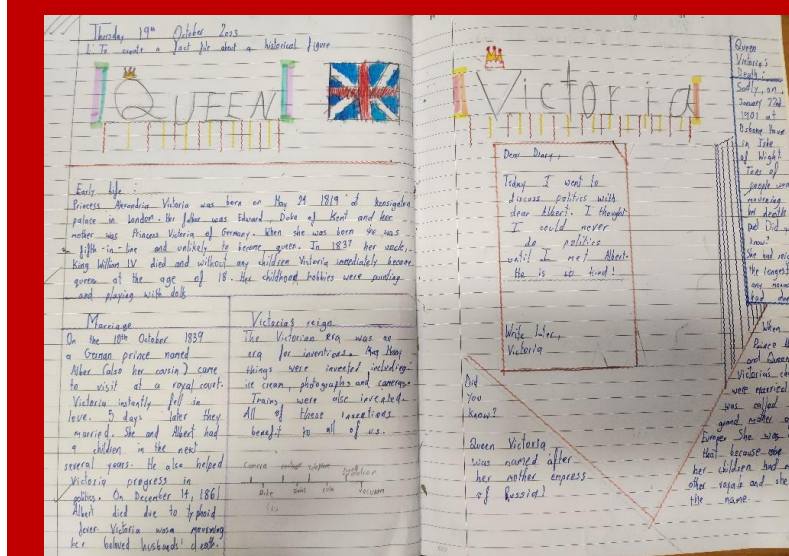 Thursday 19th October 2023
L: To create a fact file about a historical figure
QUEEN
Early life:
Princess Alexandria Victoria was born on May 24 1819 at
palace in London. Her father was Edward, Duke of Kent and her
mother was Princess Victoria of Germany. When she was born she was
fifth-in-line and unlikely to become queen. In 1837 her uncle,
King William IV died and without any children Victoria immediately became
queen at the age of 18. Her childhood hobbies were painting
and playing with dolls
Marriage
On the 10th October 1839
a German prince named
Alber (also her cousin) came
to visit at a royal court.
Victoria instantly fell in
love. 5 days later they
married. She and Albert had
9 children in the next
several years. He also helped
Victoria progress in
politics. On December 14, 1861
Albert died due to typhoid
fever. Victoria was mourning
her beloved husbands' death.
Victoria's reign
The Victorian Era was an
era for inventions. Many
things were invented including:
ice cream, photographs and cameras.
Trains were also invented.
All of these inventions
benefit to all of us.
Camera
Vacuum
Victoria
Dear Diary,
Today I went to
discuss politics with
dear Albert. I thought
I could never
do politics
until I met Albert.
He is so kind!
Write later,
Victoria
Did
You
know?
Queen Victoria
was named after
her mother empress
of Russia!
Queen
Victoria's
Death:
Sadly, on
January 22nd
1901 at
Osborne house
in Isle
of Wight
Tons of
people
mourning
death
Did
know?
She had
the longest
any
had
When
Prince
and Queen
Victoria's
were married
was called
grand mother
Europe She was
that because
her children had
other royals and she
the name.